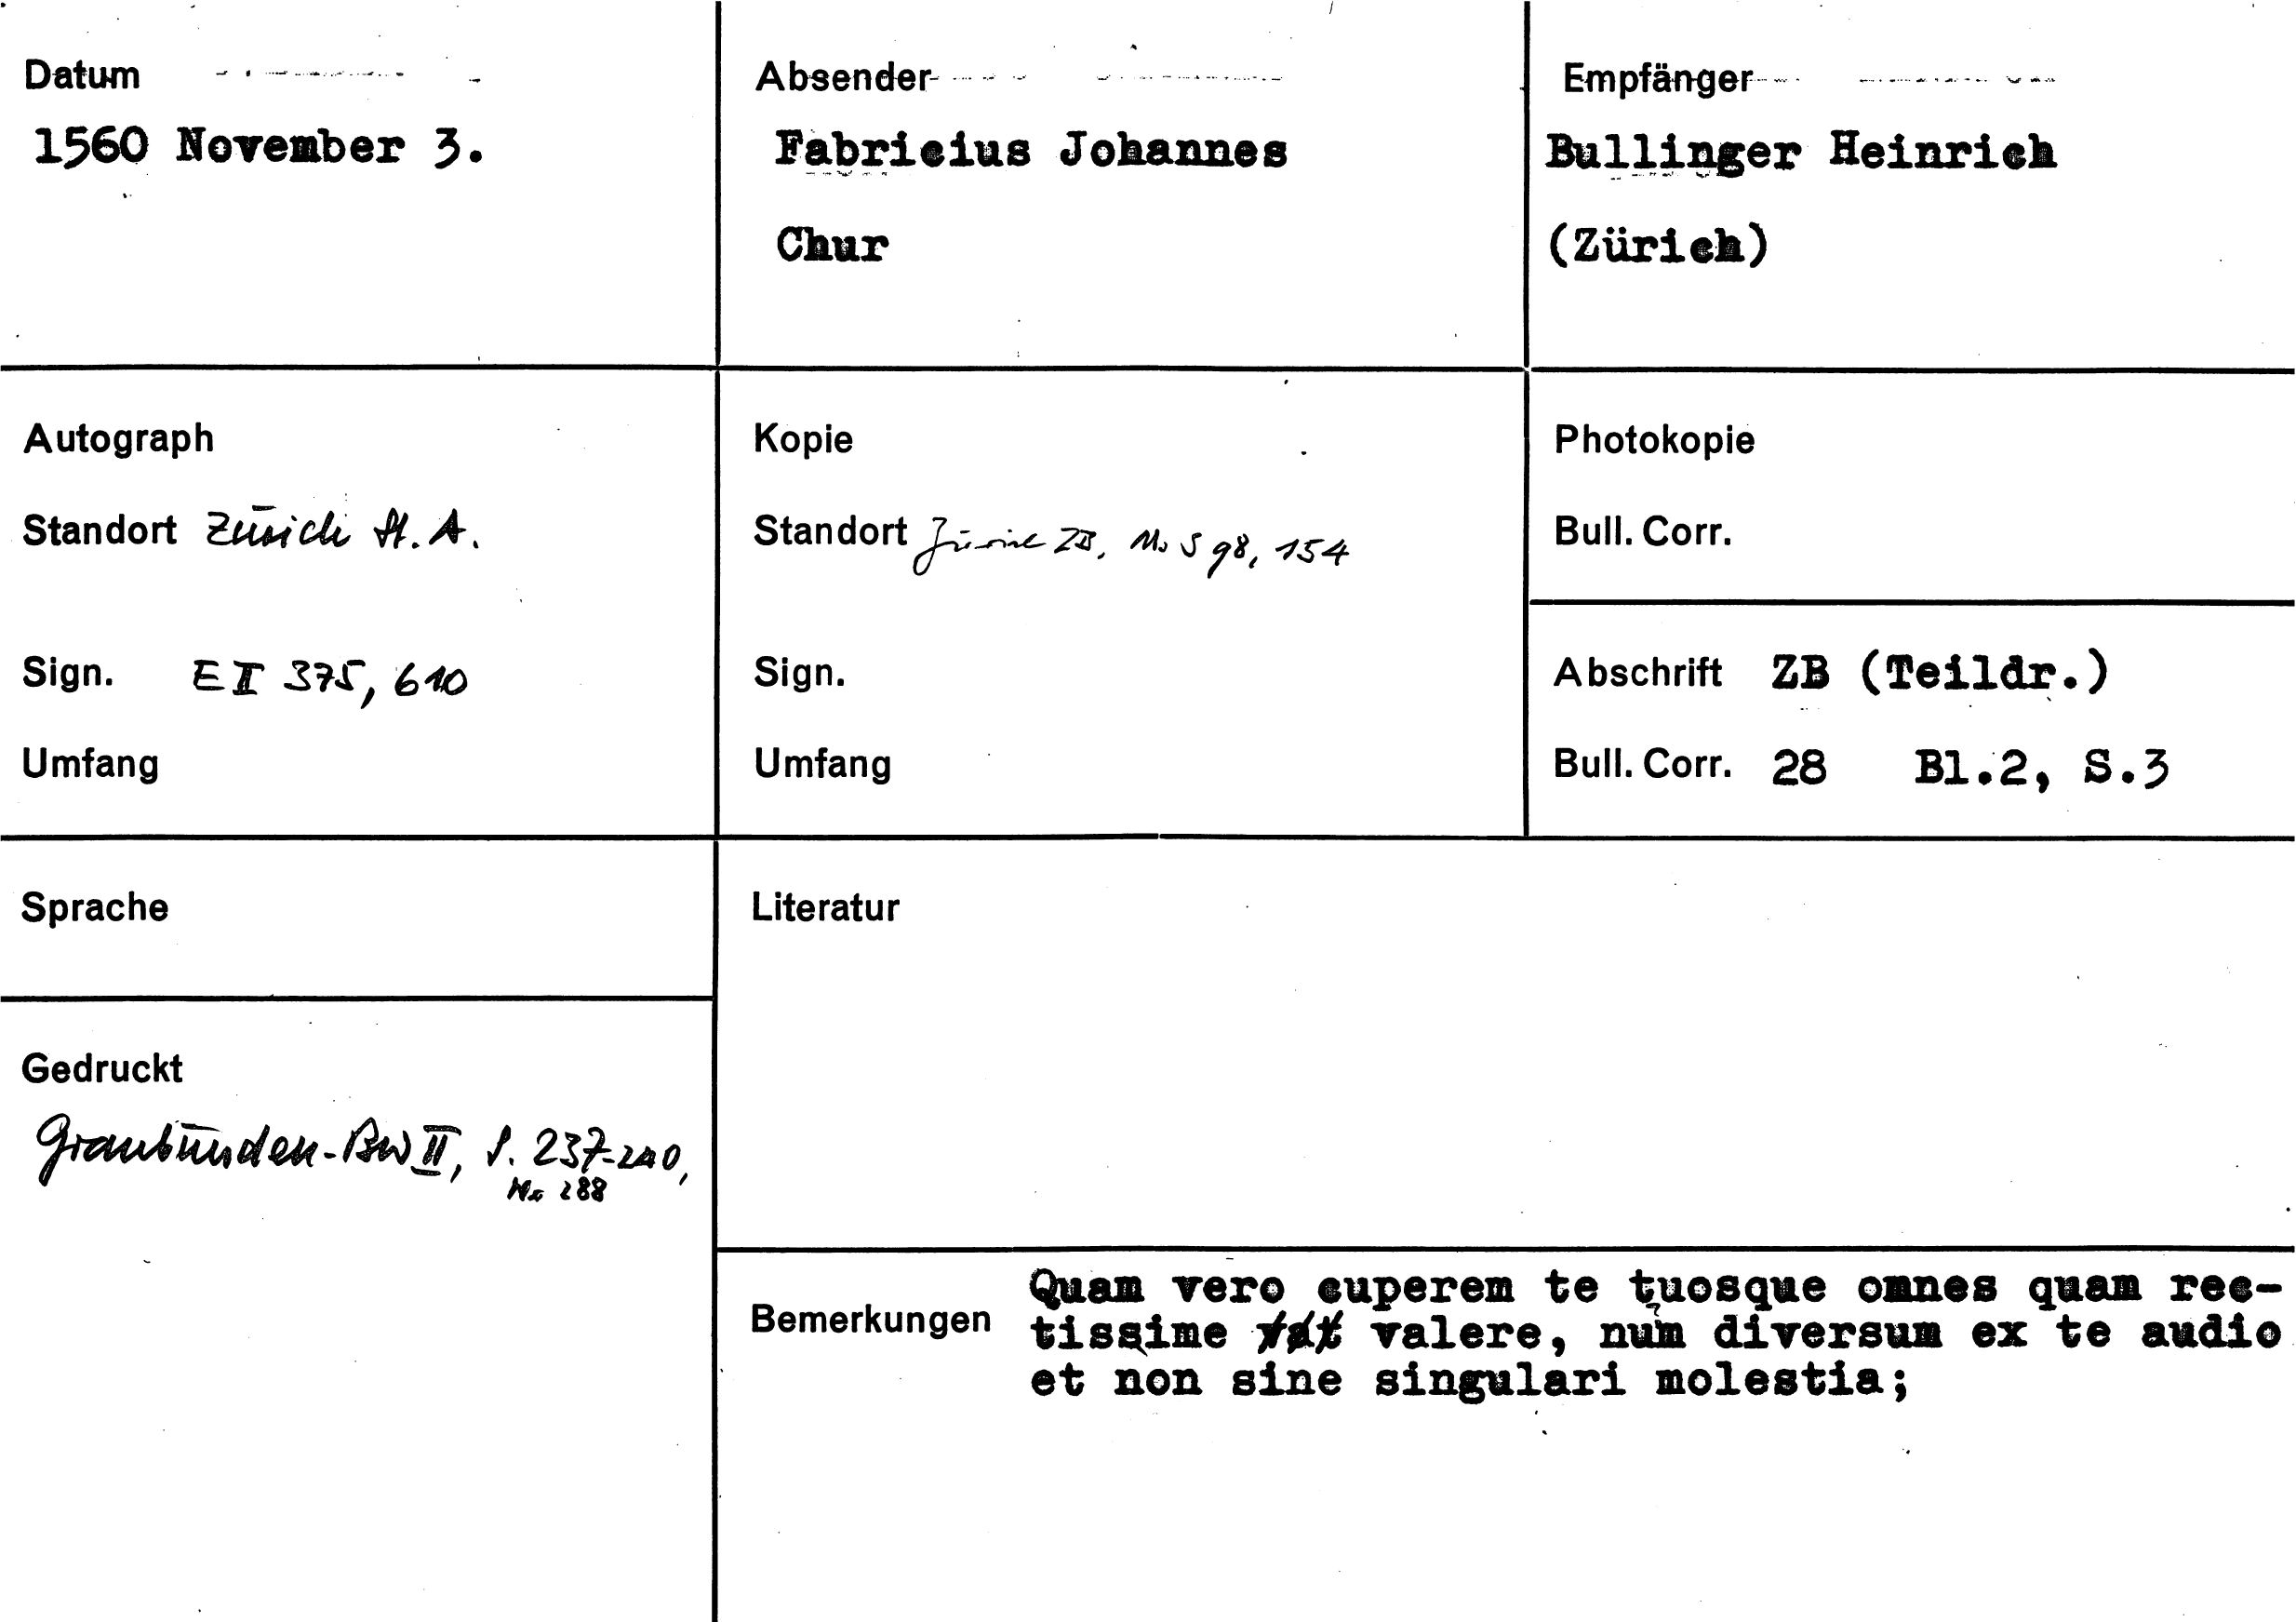 Datum
1560 November 3.
Absender
Fabricius Johannes
Chur
Empfänger
Bullinger Heinrich
(Zürich)
Autograph
Standort Zürich St. A.
Sign. E II 375, 610
Umfang
Kopie
Standort Zürich ZB, Ms S 98, 154
Sign.
Umfang
Photokopie
Bull. Corr.
Abschrift ZB (Teildr.)
Bull. Corr. 28 Bl.2, S.3
Sprache
Gedruckt
Graubünden-BW II, S. 237-240,
Nr 288
Literatur
Bemerkungen
Quam vero cuperem te tuosque omnes quam rec-
tissime valere, num diversum ex te audio
et non sine singulari molestia;